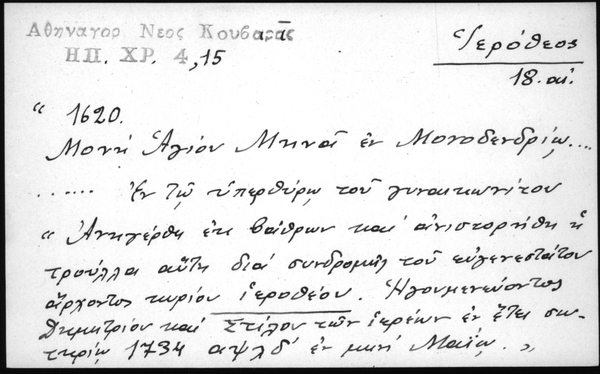 Αθηναγορ Νεος Κουβαρᾶς
ΗΠ. ΧΡ. 4,15
Ἱερόθεος
18. αἰ.
" 1620.
Μονή Ἁγίου Μηνᾶ ἐν Μονοδενδρίῳ....
...... Ἐν τῷ ὑπερθύρῳ τοῦ γυναικωνίτου
" Ἀνηγέρθη ἐκ βάθρων καί ἀνιστορήθη ἡ
τρούλλα αὕτη διά συνδρομῆς τοῦ εὐγενεστάτου
ἄρχοντος κυρίου ἱεροθέου. Ἡγουμενεύοντος
Δημητρίου καί Στίλου τῶν ἱερέων ἐν ἔτει σω-
τηρίῳ 1734 αψλδ' ἐν μηνί Μαΐῳ. "